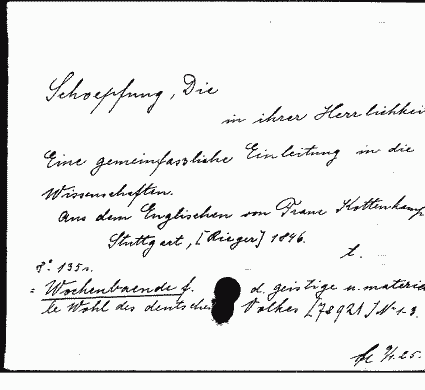 Schoepfung, Die
in ihrer Herrlichkei
Eine gemeinfassliche Einleitung in die
Wissenschaften.
Aus dem Englischen von Franz Kottenkamp
Stuttgart, [Rieger] 1846.
t.
8° 135 s.
= Wochenbaende f. d. geistige u. materie
le Wohl des deutschen Volkes [78921] N 1-3.